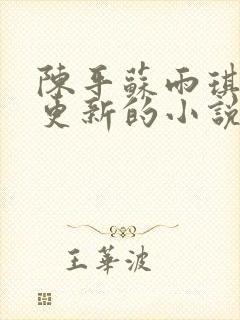 陳平蘇雨琪
更新的小說
王華波